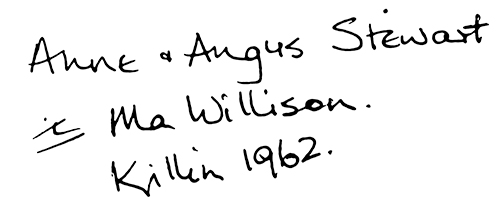 Anne + Angus Stewart
ie Ma Willison.
Killin 1962.